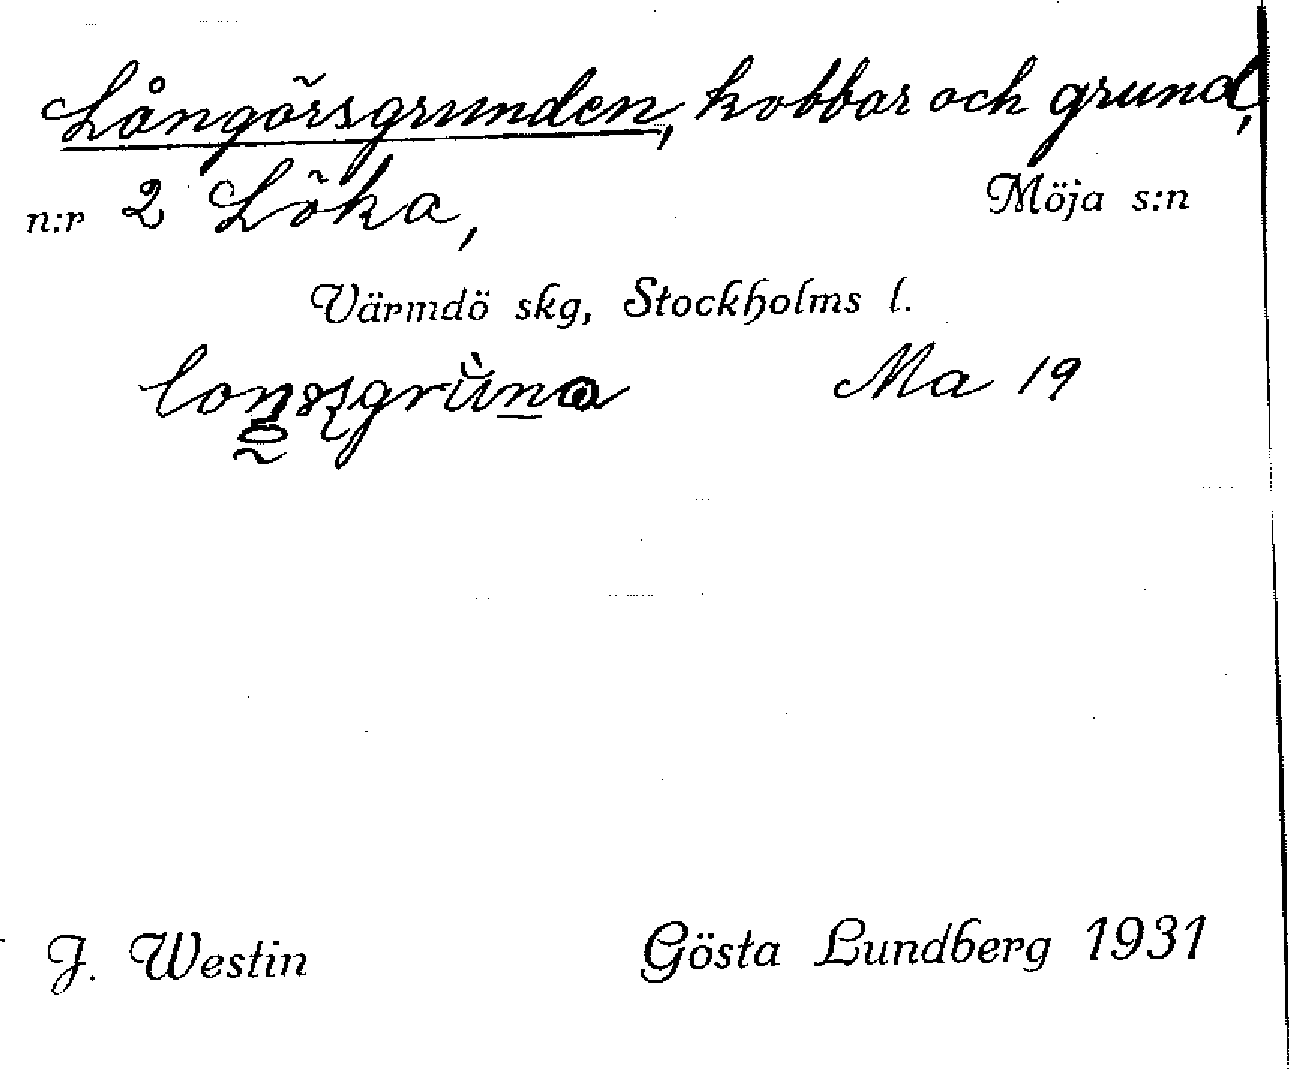 Långörsgrunden, kobbar och grund,
n:r 2 Löka, Möja s:n
Värmdö skg, Stockholms l.
Ma 19
J. Westin Gösta Lundberg 1931